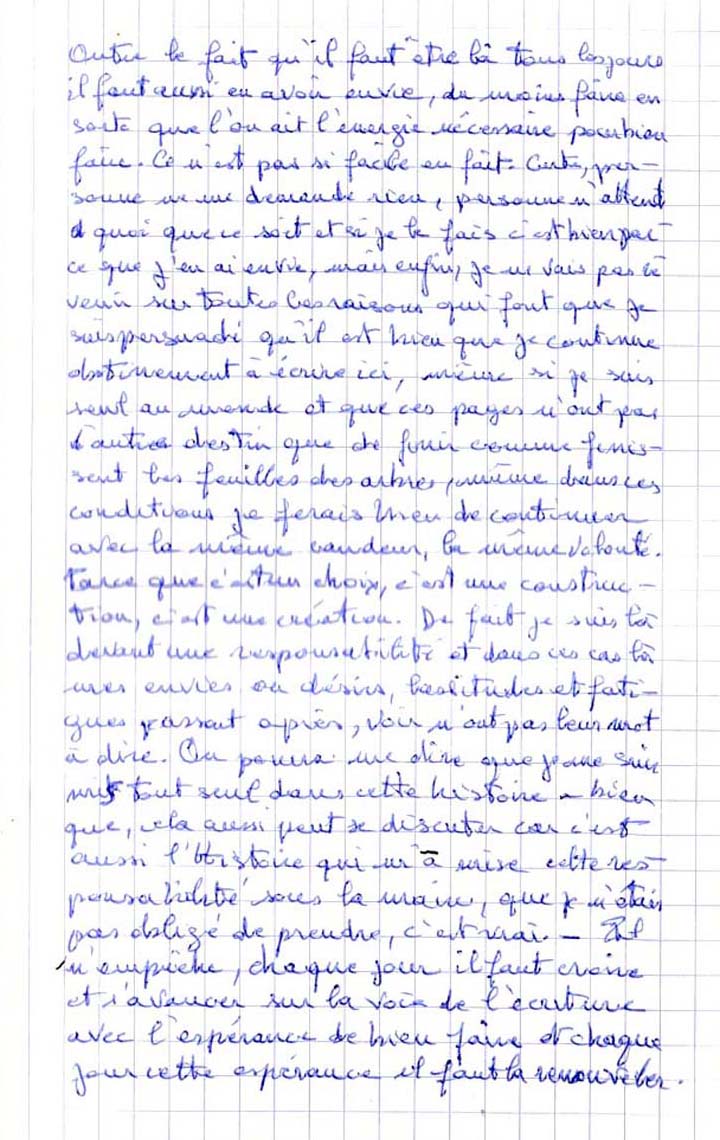 Outre le fait qu'il faut être là tous les jours
il faut aussi en avoir envie, du moins faire en
sorte que l'on ait l'énergie nécessaire pour bien
faire. Ce n'est pas si facile en fait. Certes, per-
sonne ne me demande rien, personne n'attend
quoi que ce soit et si je le fais c'est bien par-
ce que j'en ai envie, mais enfin, je ne vais pas re
venir sur toutes les raisons qui font que je
suis persuadé qu'il est bien que je continue
obstinément à écrire ici, même si je suis
seul au monde et que ces pages n'ont pas
d'autre destin que de finir comme finis-
sent les feuilles des arbres, même dans ces
conditions je ferais bien de continuer
avec la même candeur, la même volonté.
Parce que c'est un choix, c'est une construc-
tion, c'est une création. De fait je suis là
devant une responsabilité et dans ces cas là
mes envies ou désirs, lassitudes et fati-
gues passent après, voir n'ont pas leur mot
à dire. On pourra me dire que je me suis
mis tout seul dans cette histoire - bien
que, cela aussi peut se discuter car c'est
aussi l'Histoire qui m'a mise cette res
ponsabilité sous la main, que je n'étais
pas obligé de prendre, c'est vrai. - Il
n'empêche, chaque jour il faut croire
et s'avancer sur la voie de l'écriture
avec l'espérance de bien faire et chaque
jour cette espérance il faut la renouveler.